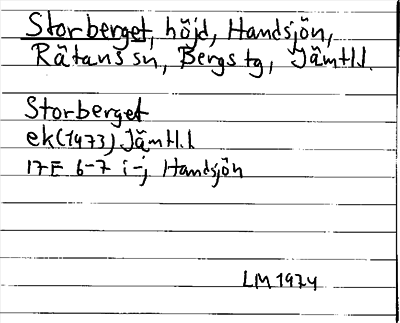 Storberget, höjd, Handsjön,
Rätans sn, Bergs tg, Jämtl.l.
Storberget
ek(1973) Jämtl.l
17E 6-7 i-j Handsjön
LM 1974